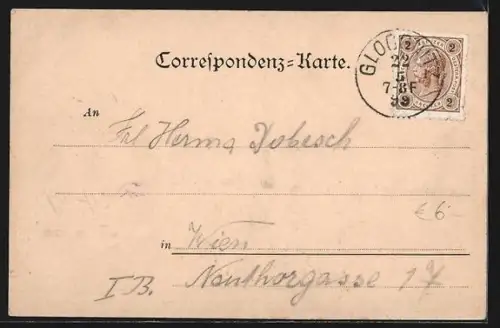 Correspondenz-Karte.
GLOGGNITZ
22
5
7-8F
99
2 2
2 2
An
Frl Herma Dobesch
€ 6.-
in Wien
I B. Neuthorgasse 17